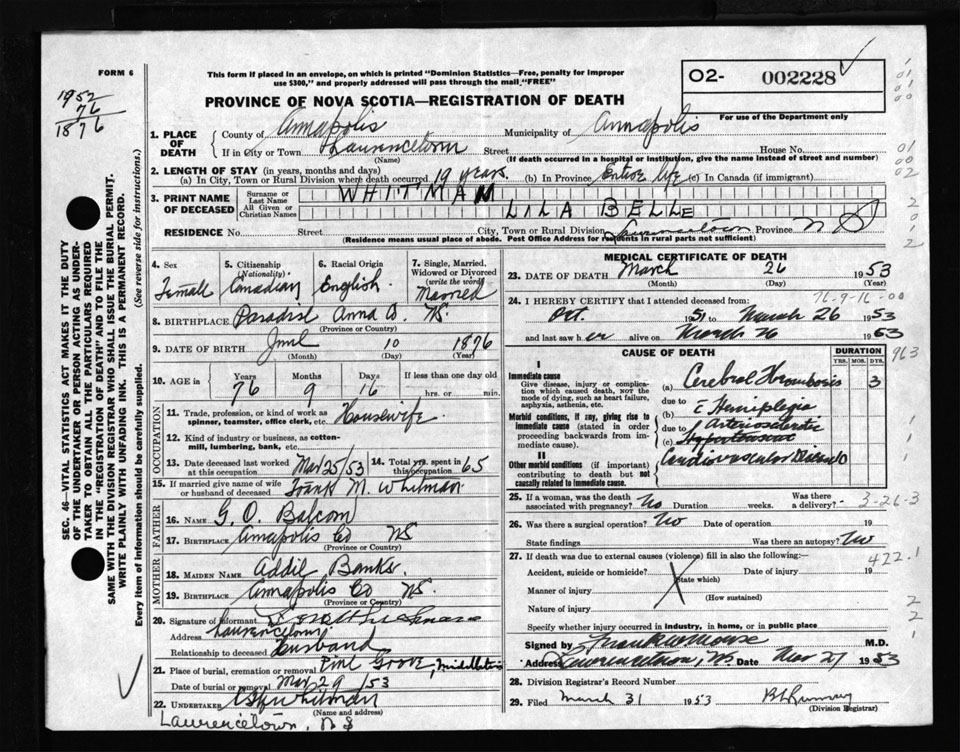 FORM 6
This form if placed in an envelope, on which is printed "Dominion Statistics—Free, penalty for improper
use $300," and properly addressed will pass through the mail "FREE"
PROVINCE OF NOVA SCOTIA—REGISTRATION OF DEATH
O2- 002228
For use of the Department only
1952
76
1876
1. PLACE OF DEATH
County of Annapolis Municipality of Annapolis
If in City or Town Laurencetown Street House No.
(Name) (If death occurred in a hospital or institution, give the name instead of street and number)
2. LENGTH OF STAY (in years, months and days)
(a) In City, Town or Rural Division where death occurred 19 years. (b) In Province Entire life (c) In Canada (if immigrant)
3. PRINT NAME OF DECEASED
Surname or Last Name WHITMAN
All Given or Christian Names LILA BELLE
RESIDENCE No. Street City, Town or Rural Division Laurencetown Province N S
(Residence means usual place of abode. Post Office Address for residents in rural parts not sufficient)
4. Sex Female
5. Citizenship (Nationality) Canadian
6. Racial Origin English
7. Single, Married, Widowed or Divorced (write the word) Married
8. BIRTHPLACE Paradise Anna Co. NS.
(Province or Country)
9. DATE OF BIRTH 10 1876
(Month) (Day) (Year)
10. AGE in Years 76 Months 9 Days 16 If less than one day old hrs. or min.
OCCUPATION
11. Trade, profession, or kind of work as spinner, teamster, office clerk, etc. Housewife
12. Kind of industry or business, as cotton-mill, lumbering, bank, etc.
13. Date deceased last worked at this occupation Mar 25/53
14. Total yrs. spent in this occupation 65
15. If married give name of wife or husband of deceased Frank M. Whitman
FATHER
16. NAME G. O. Balcom
17. BIRTHPLACE Annapolis Co NS
(Province or Country)
MOTHER
18. MAIDEN NAME Addie Banks
19. BIRTHPLACE Annapolis Co NS.
(Province or Country)
20. Signature of informant
Address Laurencetown
Relationship to deceased Husband
21. Place of burial, cremation or removal Pine Grove, Middleton
Date of burial or removal Mar 29/53
22. UNDERTAKER Whitman
(Name and address)
Laurencetown, N S
MEDICAL CERTIFICATE OF DEATH
23. DATE OF DEATH March 26 1953
(Month) (Day)
76-9-16-00
24. I HEREBY CERTIFY that I attended deceased from:
Oct. 1951 to March 26 1953
and last saw her alive on March 26 1953
CAUSE OF DEATH DURATION
YRS. MOS. DYS.
963
I
Immediate cause
Give disease, injury or complication which caused death, NOT the mode of dying, such as heart failure, asphyxia, asthenia, etc.
(a) Cerebral Thrombosis 3
due to
(b) Hemiplegia
Morbid conditions, if any, giving rise to immediate cause (stated in order proceeding backwards from immediate cause).
due to Arteriosclerotic
(c) Hypertensive
II
Other morbid conditions (if important) contributing to death but not causally related to immediate cause.
Cardiovascular Disease
25. If a woman, was the death associated with pregnancy? No Duration weeks. Was there a delivery?
3-26-3
26. Was there a surgical operation? No Date of operation 19
State findings Was there an autopsy? No
27. If death was due to external causes (violence) fill in also the following:—
422.1
Accident, suicide or homicide? Date of injury 19
(State which)
Manner of injury
(How sustained)
Nature of injury
Specify whether injury occurred in industry, in home, or in public place
Signed by Frank W Morse M.D.
Address Laurencetown, NS. Date Mar 27 1953
28. Division Registrar's Record Number
29. Filed March 31 1953
(Division Registrar)
SEC. 46—VITAL STATISTICS ACT MAKES IT THE DUTY
OF THE UNDERTAKER OR PERSON ACTING AS UNDER-
TAKER TO OBTAIN ALL THE PARTICULARS REQUIRED
IN THE "REGISTRATION OF DEATH" AND TO FILE THE
SAME WITH THE DIVISION REGISTRAR WHO SHALL ISSUE THE BURIAL PERMIT.
WRITE PLAINLY WITH UNFADING INK. THIS IS A PERMANENT RECORD.
Every item of information should be carefully supplied. (See reverse side for instructions.)